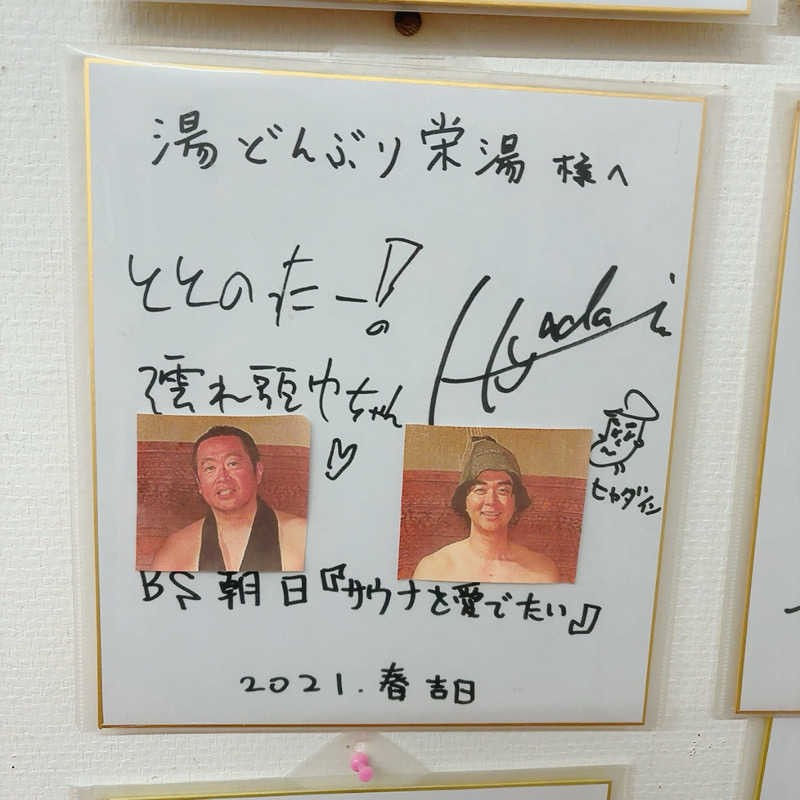 湯どんぶり栄湯 様へ
ととのったー!
濡れ頭巾ちゃん
Hyadain
ヒャダイン
BS朝日『サウナを愛でたい』
2021.春吉日